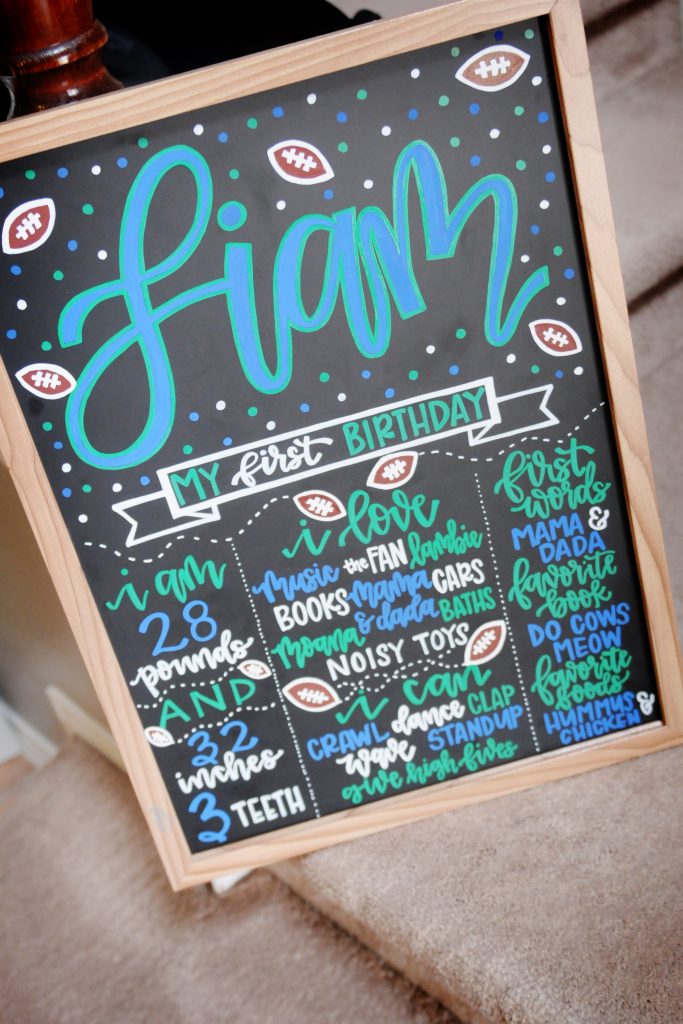 Liam
MY first BIRTHDAY
i am
28
pounds
AND
32
inches
3 TEETH
i love
music the FAN lambie
BOOKS mama CARS
& dada BATHS
moana
NOISY TOYS
i can
CRAWL dance CLAP
wave STANDUP
give high fives
first
words
MAMA &
DADA
favorite
book
DO COWS
MEOW
favorite
foods
HUMMUS &
CHICKEN